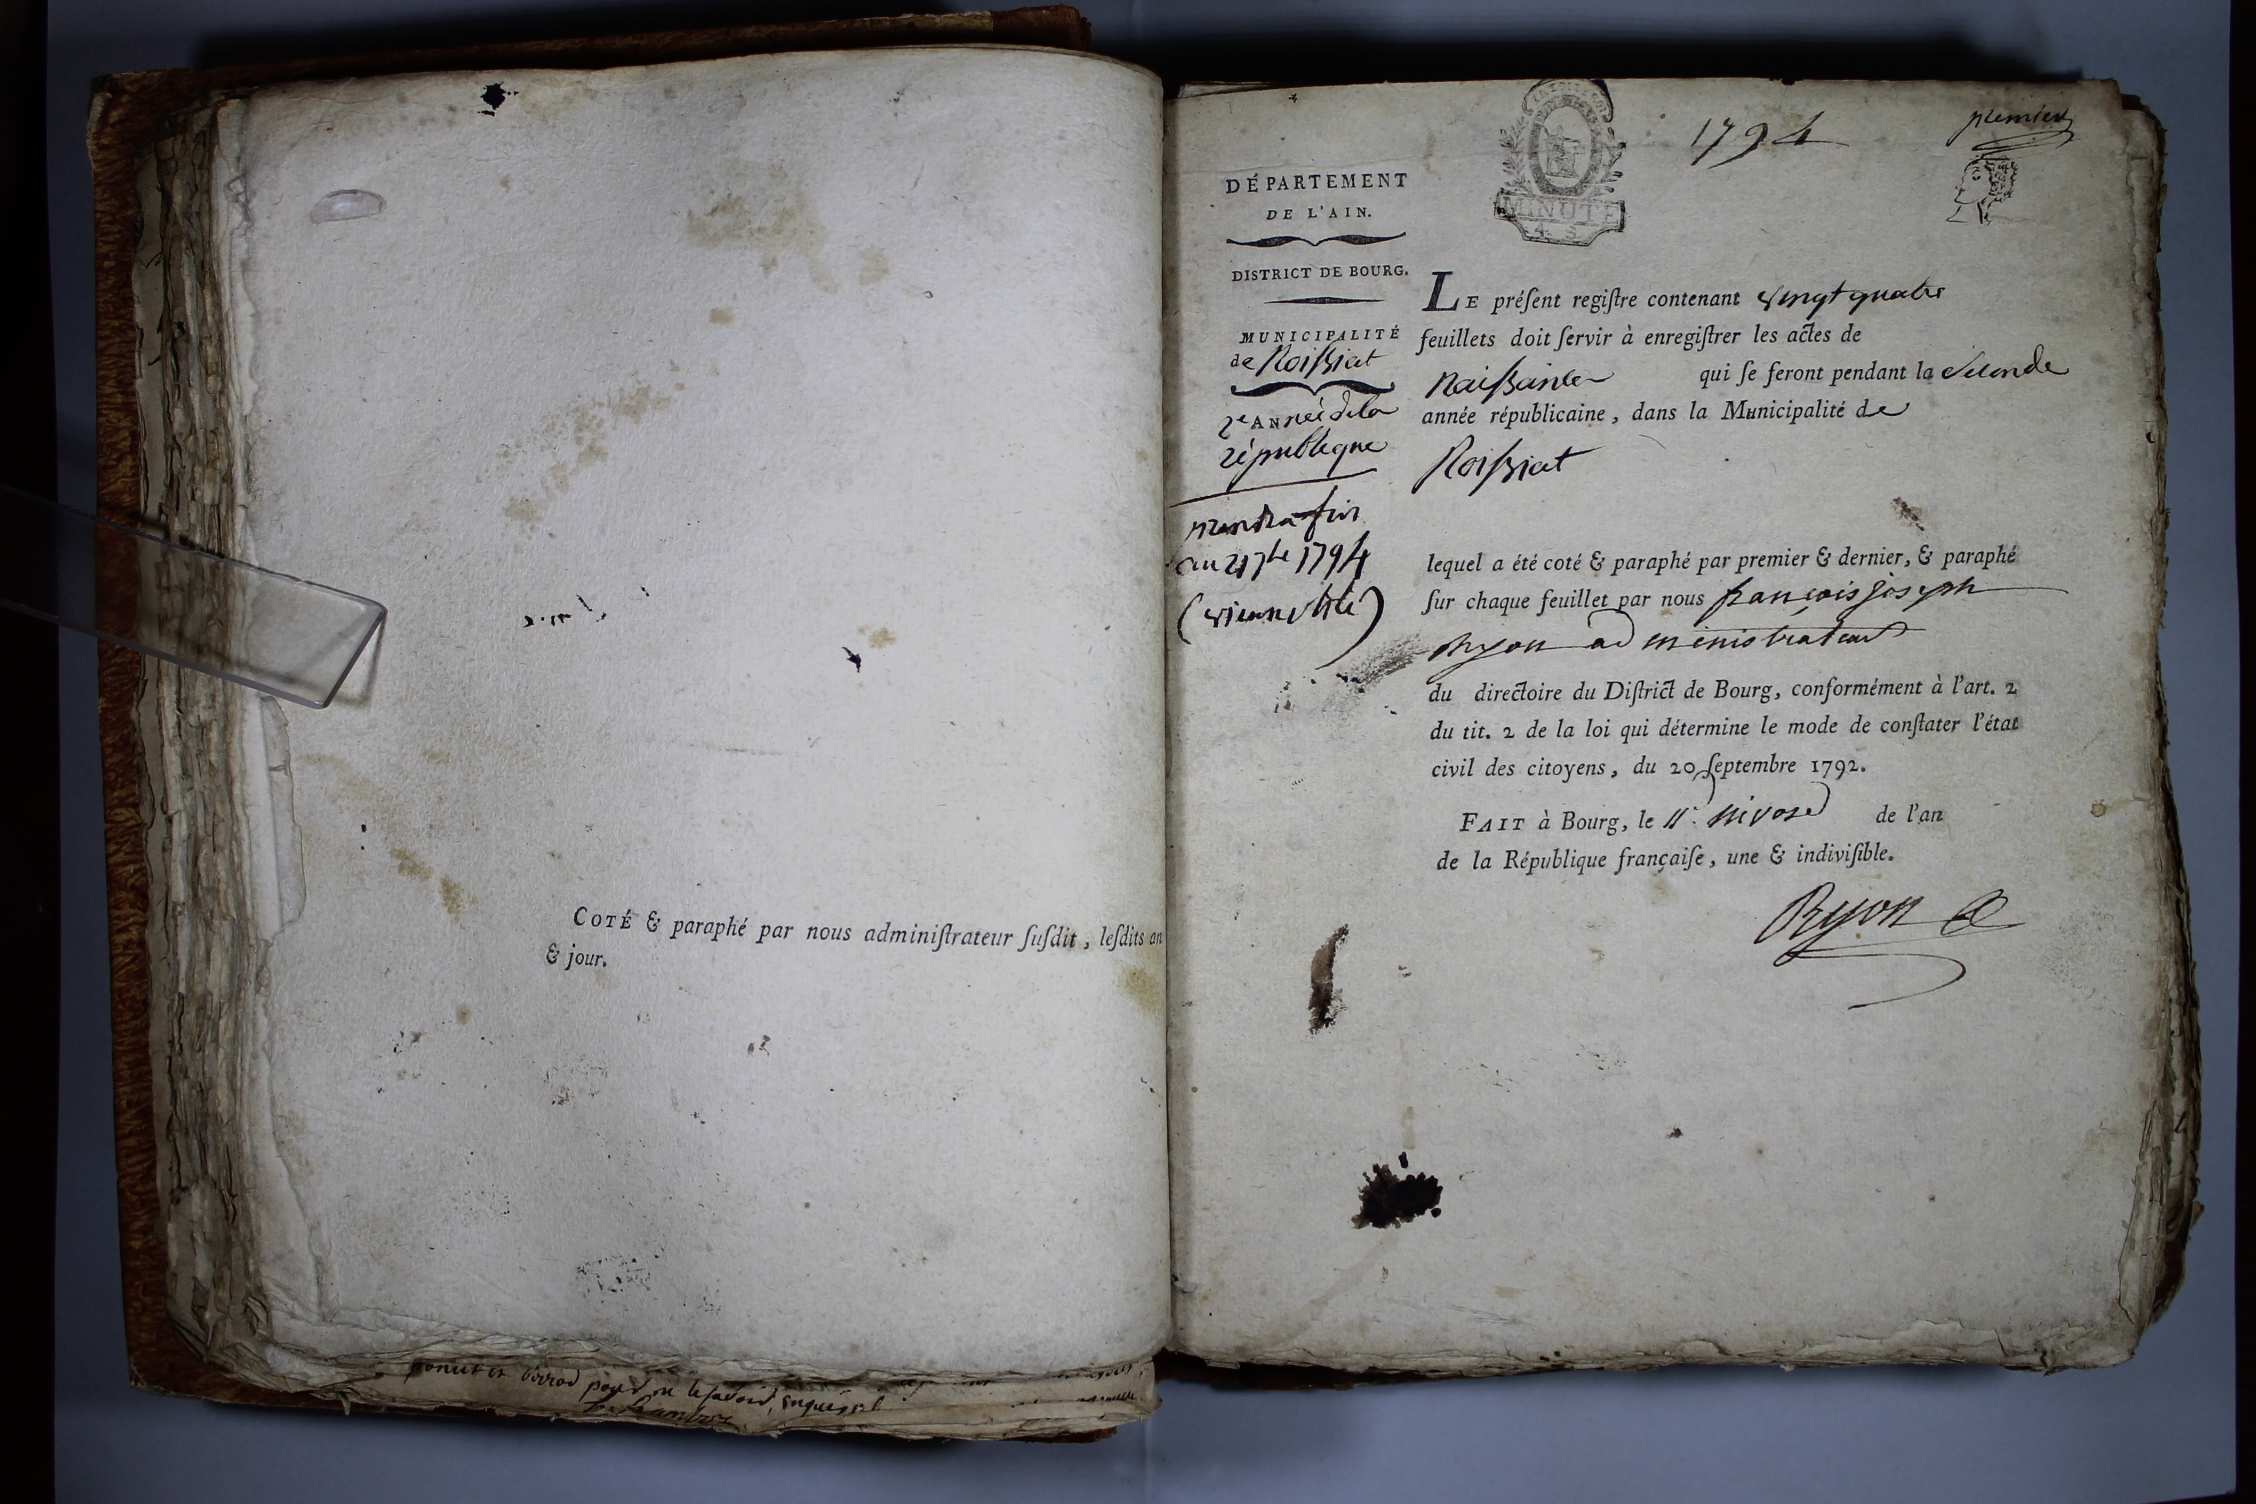 COTÉ & paraphé par nous adminiſtrateur ſuſdit, leſdits an
& jour.
1794
premier
MINUTE
4. S.
DÉPARTEMENT
DE L'AIN.
DISTRICT DE BOURG.
MUNICIPALITÉ
de Noiſsiat
2e ANNée de la
république
prendra fin
au 21 7bre 1794
(vieux stile)
LE préſent regiſtre contenant vingt quatre
feuillets doit ſervir à enregiſtrer les actes de
Naiſsance qui ſe feront pendant la seconde
année républicaine, dans la Municipalité de
Noiſsiat
lequel a été coté & paraphé par premier & dernier, & paraphé
ſur chaque feuillet par nous françois joseph
Ryon administrateur
du directoire du Diſtrict de Bourg, conformément à l'art. 2
du tit. 2 de la loi qui détermine le mode de conſtater l'état
civil des citoyens, du 20 ſeptembre 1792.
FAIT à Bourg, le 11. nivose de l'an
de la République françaiſe, une & indiviſible.
Ryon